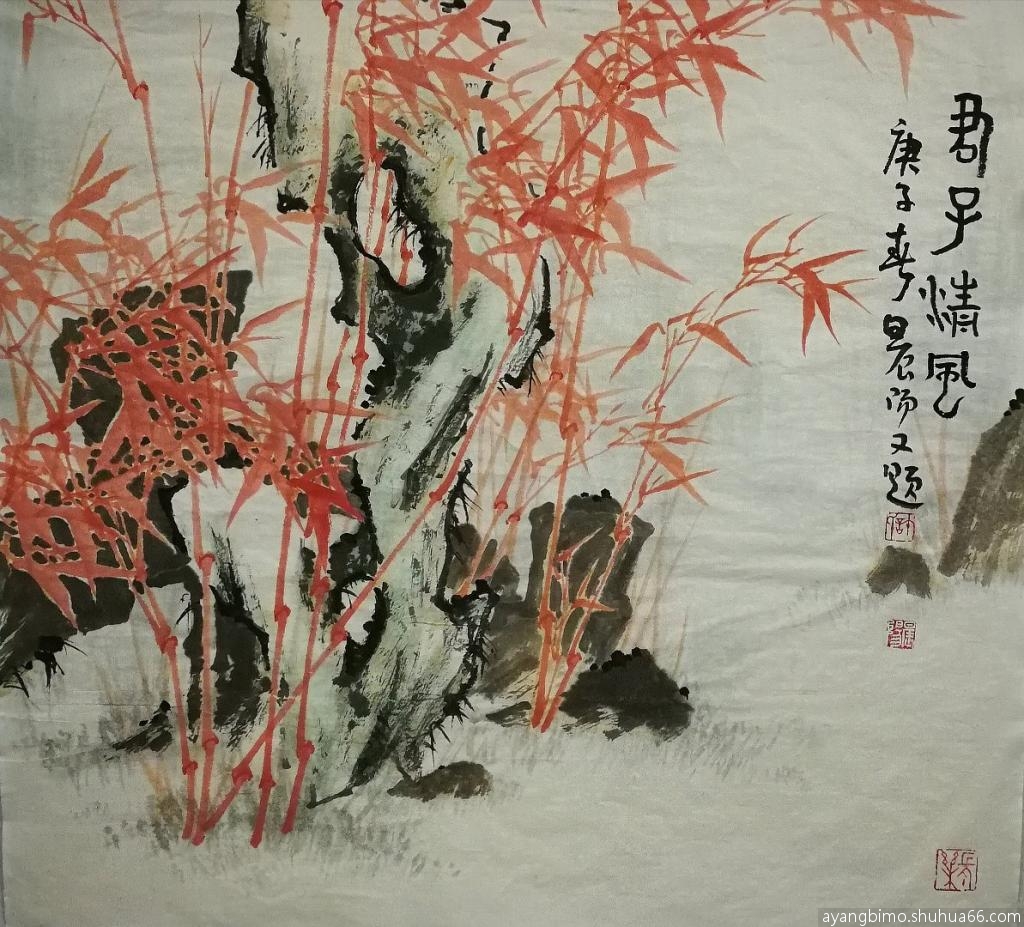 君子情风
庚子春晨阳又题
ayangbimo.shuhua66.com